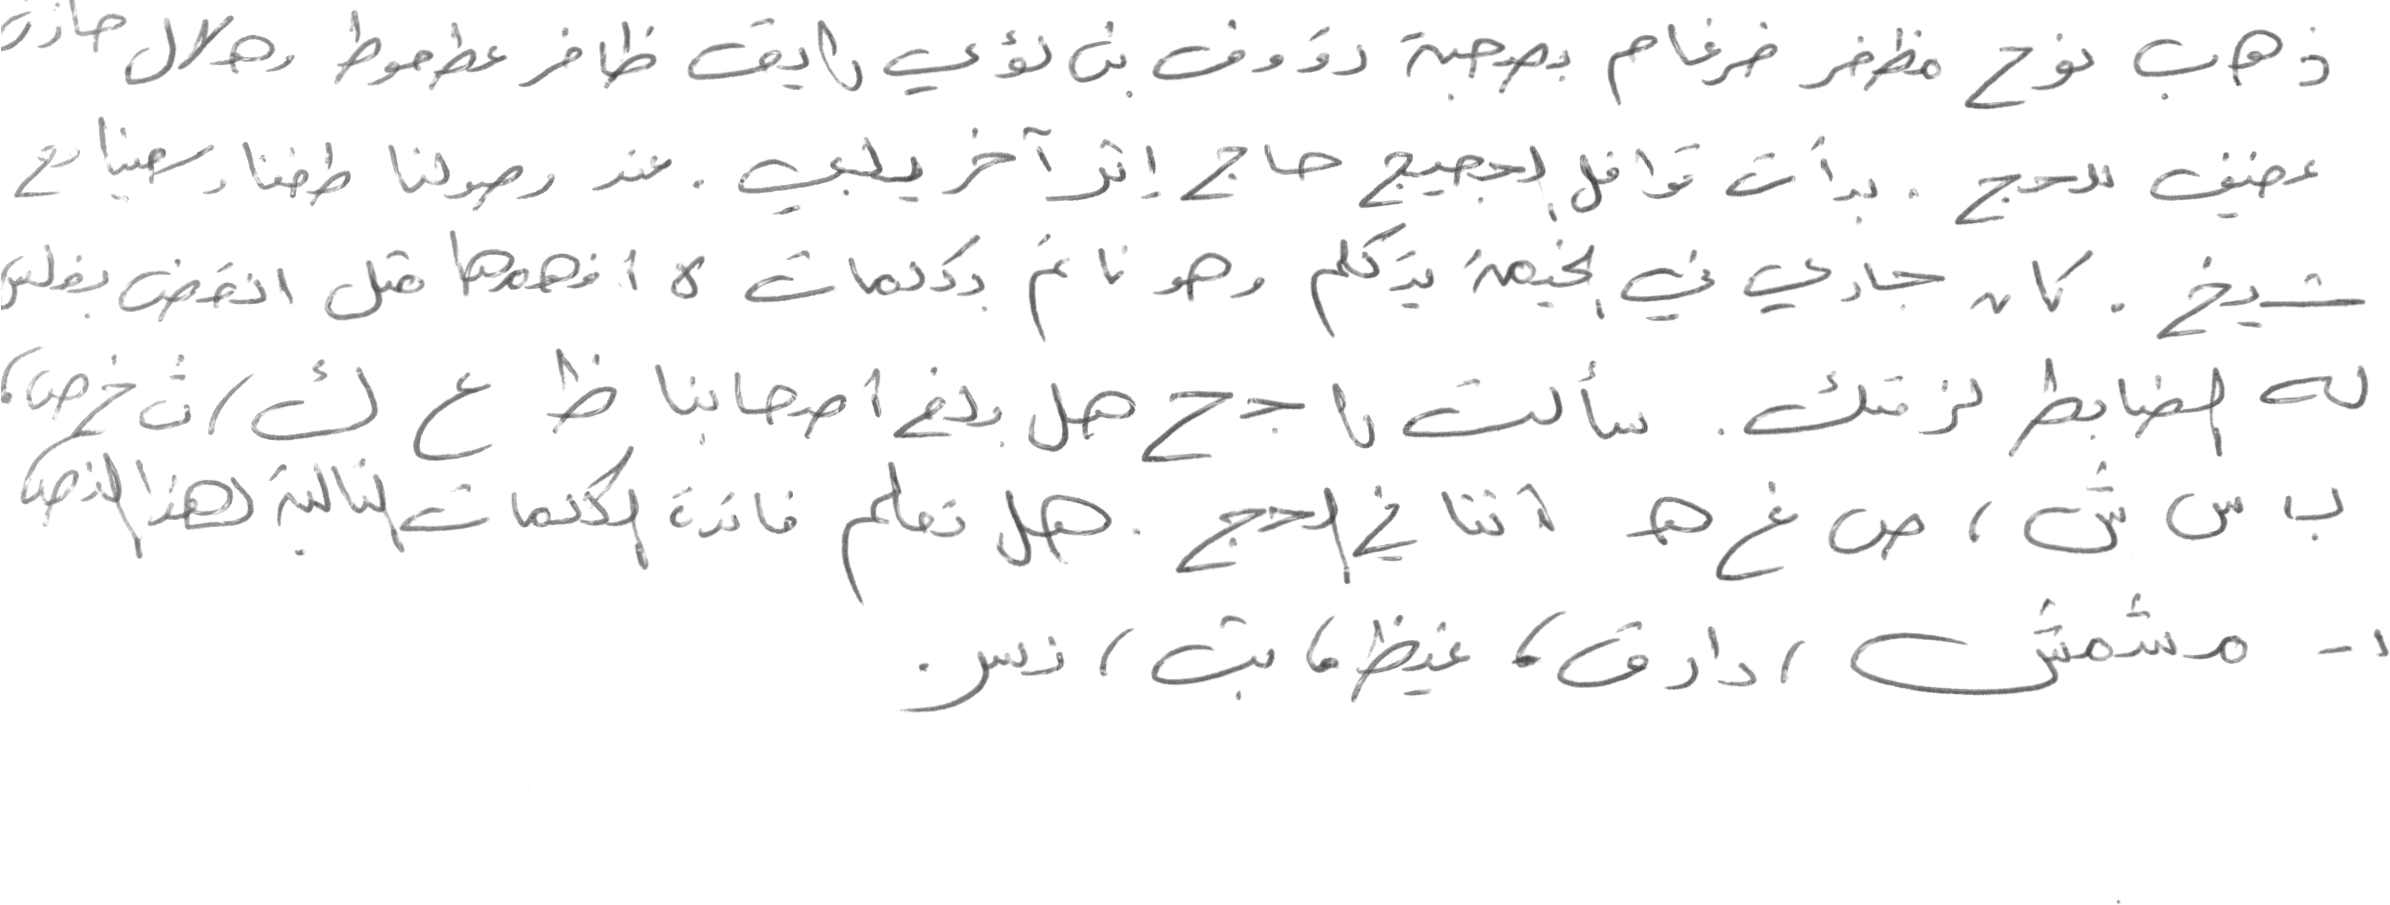 ذهب نوح مظفر ضرغام بصحبة رؤوف بن لؤي رايق ظافر عطعوط وهلال حازت
عضيف للحج . بدأت قوافل الحجيج حاج إثر آخر يلبي . عند وصولنا طفنا وسعينا مع
شيخ . كان جاري في الخيمة يتكلم وهو نائم بكلمات لا أفهمها مثل انقض بغلس
له الضابط لزقتك . سألت راجح هل بلغ أصحابنا ظ ع ك ، ث خ ص ،
ب س ش ، ص غ هـ أننا في الحج . هل تعلم فائدة الكلمات التالية لهذا النص
١- مشمش ، دارق ، غيظ ، بت ، نس .